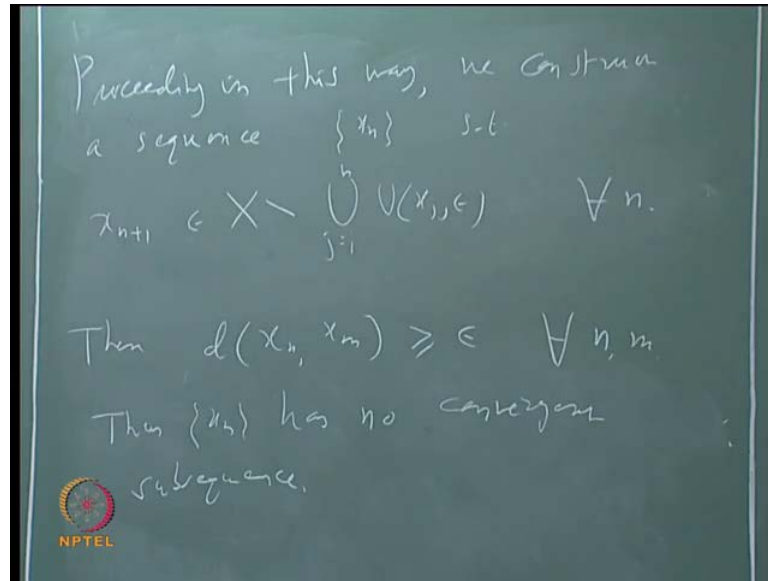 Proceeding in this way, we construct
a sequence {xn} s.t
xn+1 ∈ X \ ⋃ⁿj=1 U(xj, ∈) ∀ n.
Then d(xn, xm) ⩾ ∈ ∀ n, m
Thus {xn} has no convergent
subsequence.
NPTEL